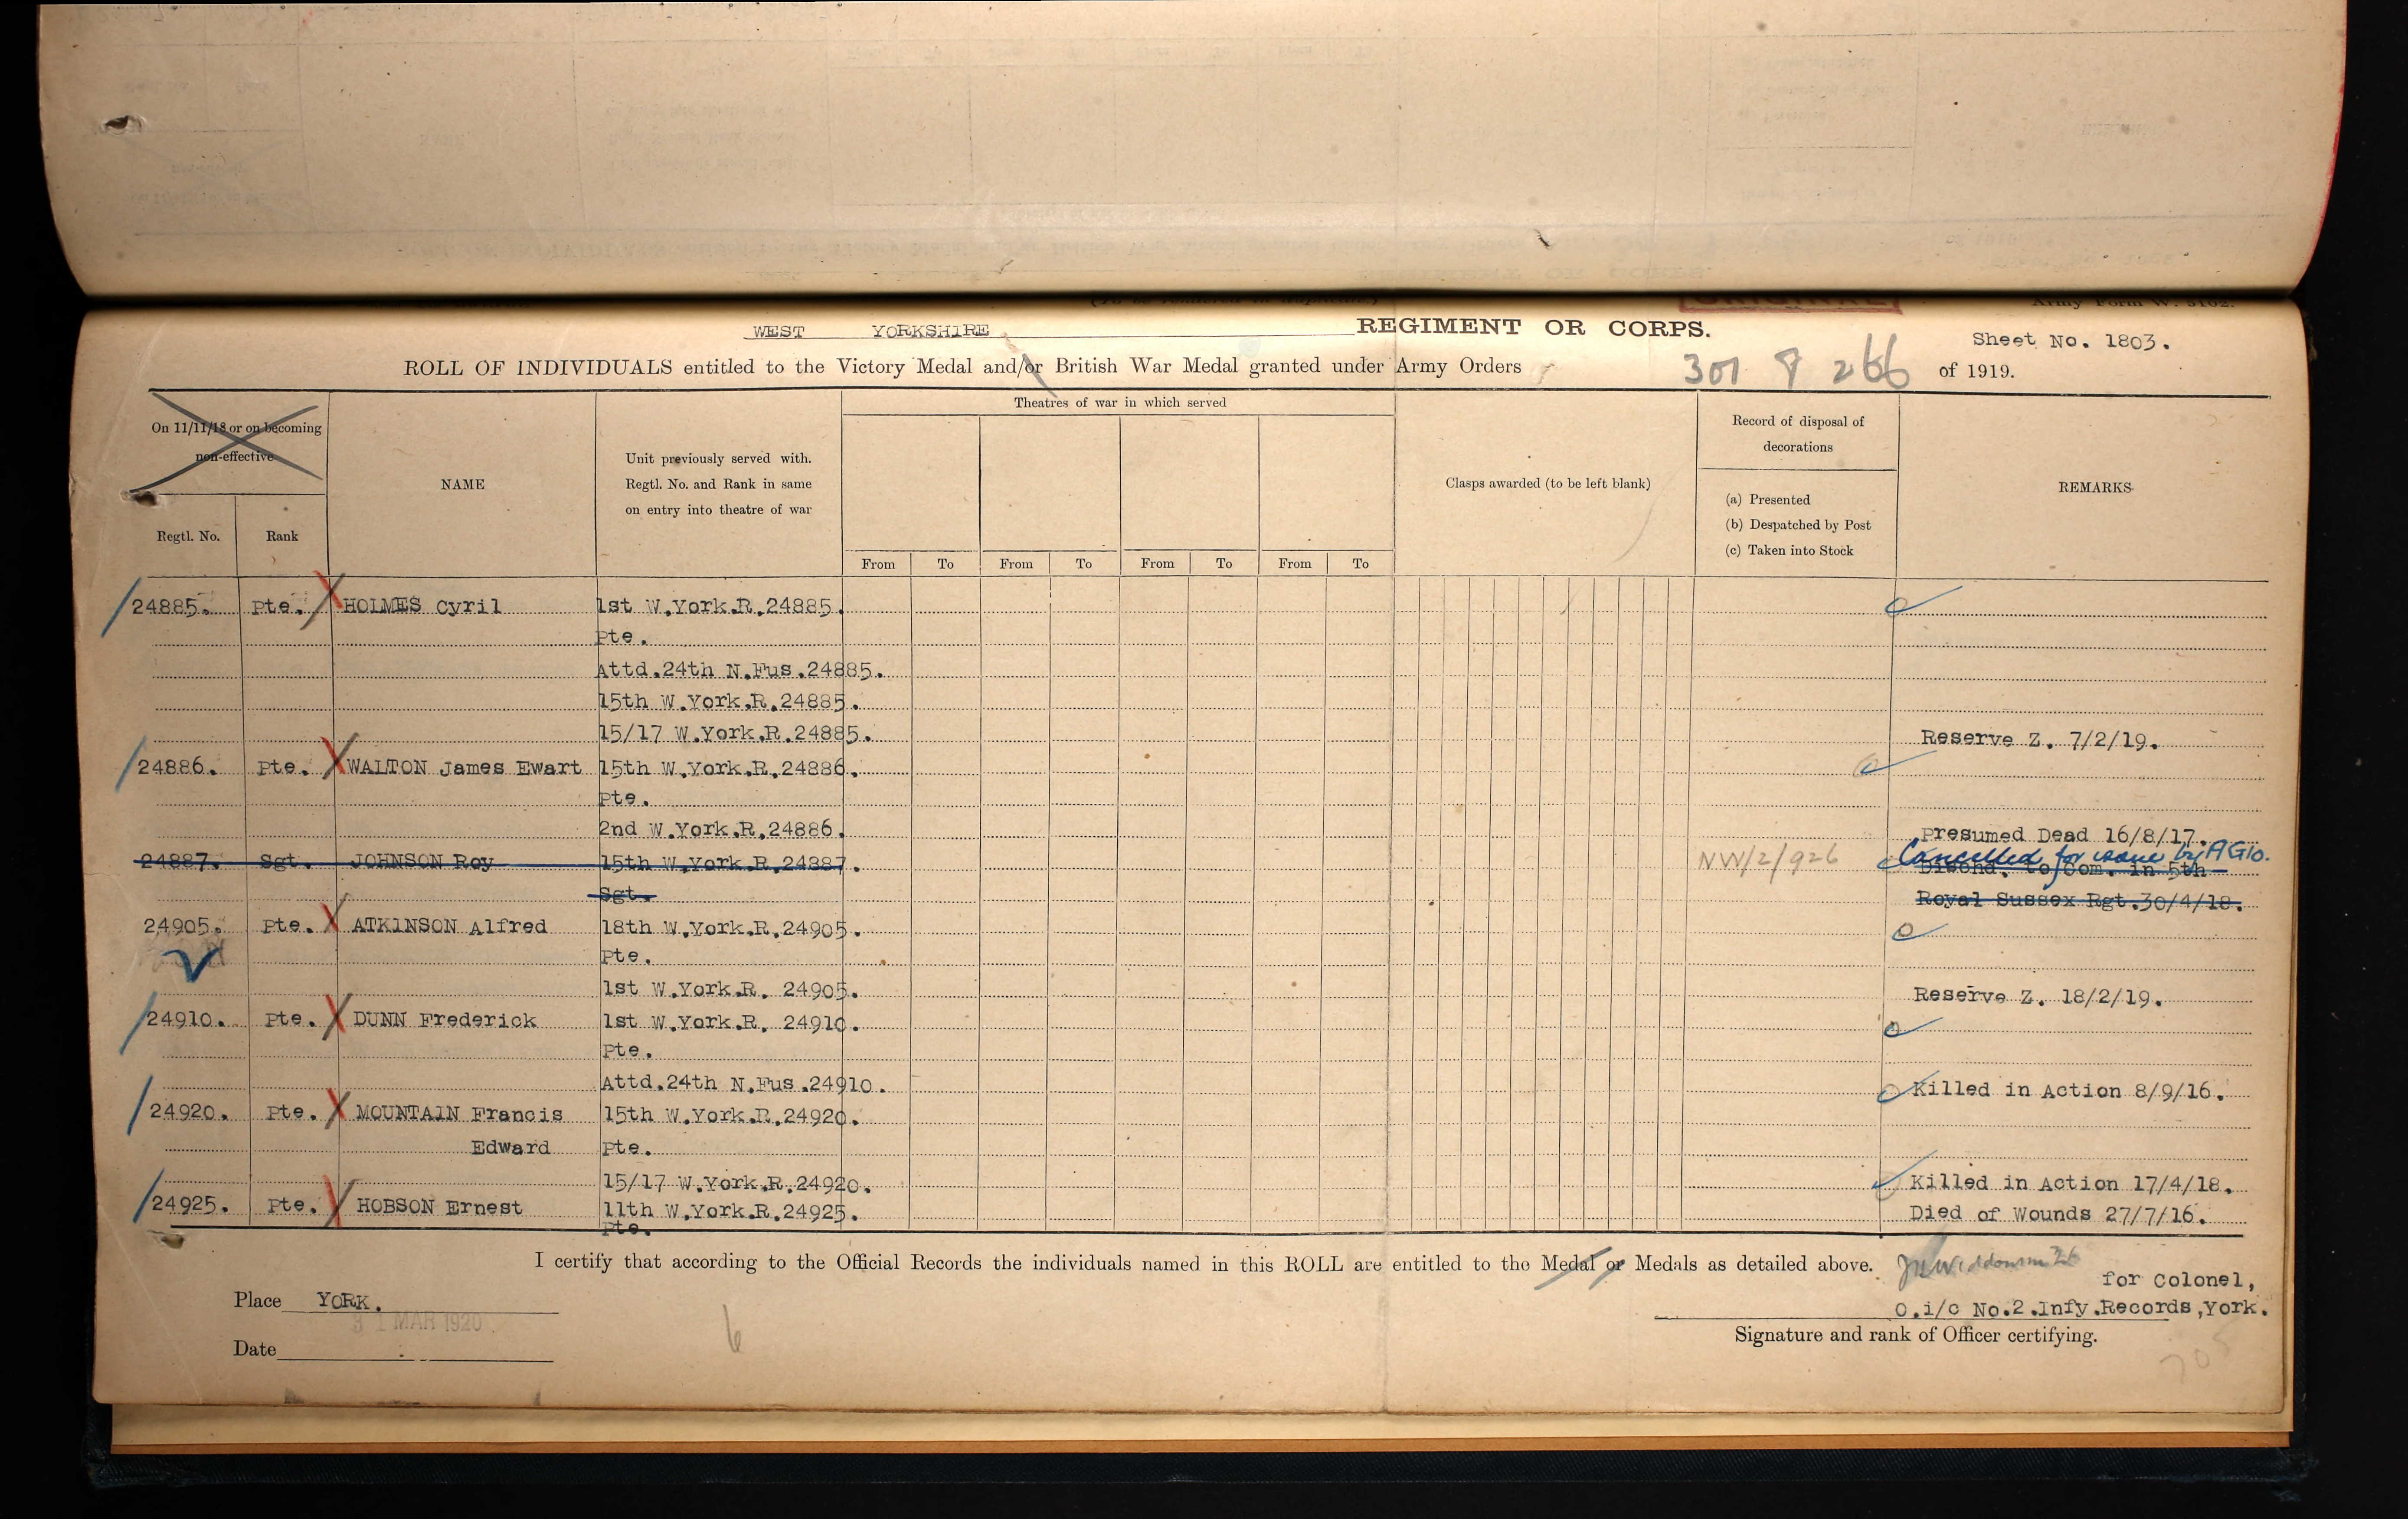 WEST YORKSHIRE REGIMENT OR CORPS.
Sheet No. 1803.
ROLL OF INDIVIDUALS entitled to the Victory Medal and/or British War Medal granted under Army Orders 301 & 266 of 1919.
On 11/11/18 or on becoming
non-effective
Regtl. No.
Rank
NAME
Unit previously served with.
Regtl. No. and Rank in same
on entry into theatre of war
Theatres of war in which served
From To From To From To From To
Clasps awarded (to be left blank)
Record of disposal of
decorations
(a) Presented
(b) Despatched by Post
(c) Taken into Stock
REMARKS
24885. Pte. HOLMES Cyril 1st W.York.R.24885.
Pte.
Attd.24th N.Fus.24885.
15th W.York.R.24885.
15/17 W.York.R.24885. Reserve Z. 7/2/19.
24886. Pte. WALTON James Ewart 15th W.York.R.24886.
Pte.
2nd W.York.R.24886. Presumed Dead 16/8/17.
Cancelled for issue by AG10.
24887. Sgt. JOHNSON Roy 15th W.York.R.24887. NW/2/926 Dischd. to Com. in 5th
Sgt. Royal Sussex Rgt.30/4/18.
24905. Pte. ATKINSON Alfred 18th W.York.R.24905.
Pte.
1st W.York.R. 24905. Reserve Z. 18/2/19.
24910. Pte. DUNN Frederick 1st W.York.R. 24910.
Pte.
Attd.24th N.Fus.24910. Killed in Action 8/9/16.
24920. Pte. MOUNTAIN Francis 15th W.York.R.24920.
Edward Pte.
15/17 W.York.R.24920. Killed in Action 17/4/18.
24925. Pte. HOBSON Ernest 11th W.York.R.24925. Died of Wounds 27/7/16.
Pte.
I certify that according to the Official Records the individuals named in this ROLL are entitled to the Medal or Medals as detailed above.
for Colonel,
Place YORK.
O.i/c No.2.Infy.Records,York.
31 MAR 1920
Signature and rank of Officer certifying.
Date
6